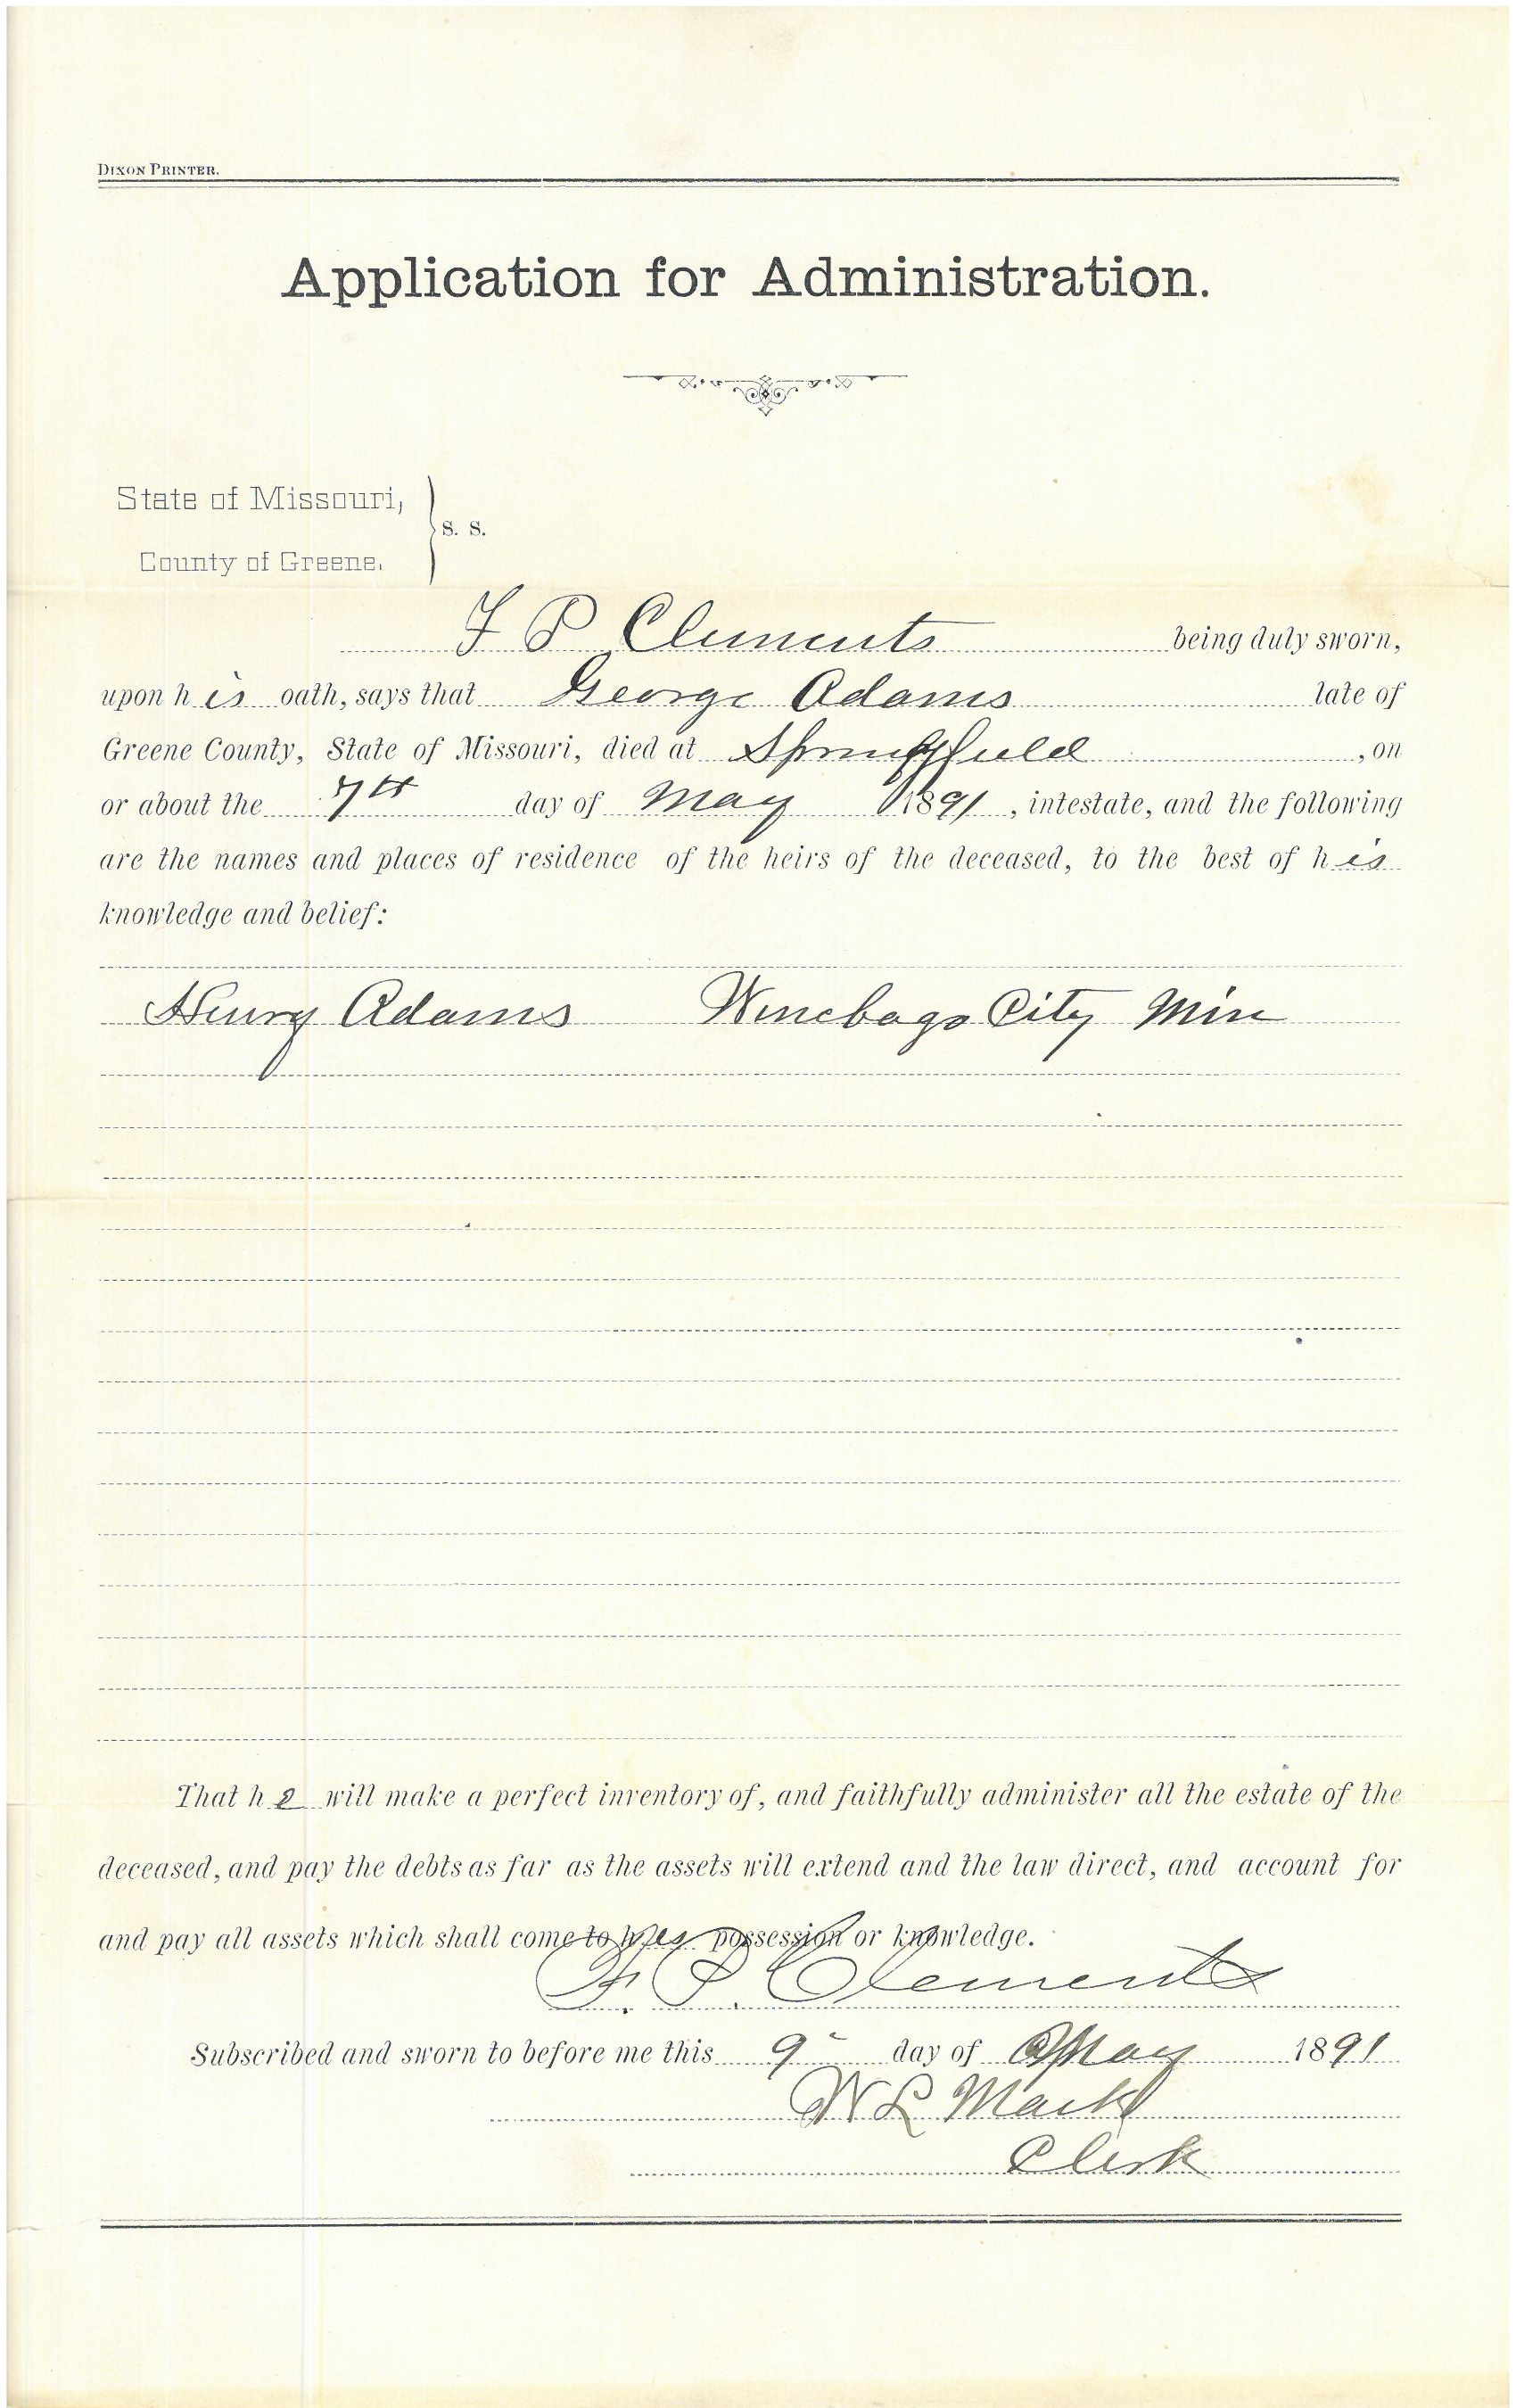 DIXON PRINTER.
Application for Administration.
State of Missouri,
S. S.
County of Greene.
F P Clements being duly sworn,
upon his oath, says that George Adams late of
Greene County, State of Missouri, died at Springfield, on
or about the 7th day of May 1891, intestate, and the following
are the names and places of residence of the heirs of the deceased, to the best of his
knowledge and belief:
Henry Adams Winebago City Min
That he will make a perfect inventory of, and faithfully administer all the estate of the
deceased, and pay the debts as far as the assets will extend and the law direct, and account for
and pay all assets which shall come to his possession or knowledge.
F. P. Clements
Subscribed and sworn to before me this 9 day of May 1891
W L Mack
Clerk